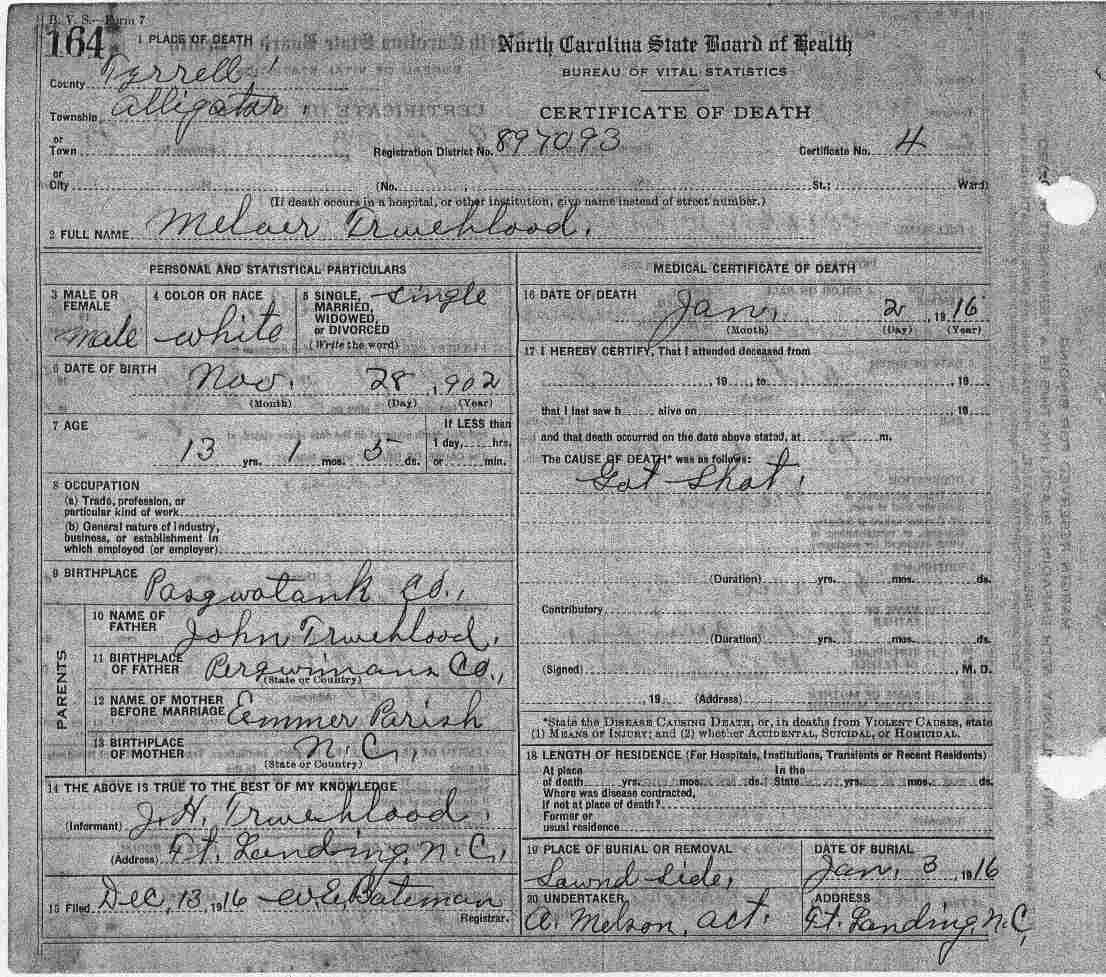 B. V. S.—Form 7
164
1 PLACE OF DEATH
North Carolina State Board of Health
BUREAU OF VITAL STATISTICS
CERTIFICATE OF DEATH
County Tyrrell
Township Alligator
or Town
Registration District No. 897093
Certificate No. 4
or City (No. , St.; Ward)
(If death occurs in a hospital, or other institution, give name instead of street number.)
2 FULL NAME Melver Trueblood.
PERSONAL AND STATISTICAL PARTICULARS
3 MALE OR FEMALE male
4 COLOR OR RACE white
5 SINGLE, MARRIED, WIDOWED, or DIVORCED (Write the word) single
6 DATE OF BIRTH Nov. 28, 902
(Month) (Day) (Year)
7 AGE 13 yrs. 1 mos. 5 ds.
If LESS than 1 day, hrs. or min.
8 OCCUPATION
(a) Trade, profession, or particular kind of work
(b) General nature of industry, business, or establishment in which employed (or employer)
9 BIRTHPLACE Pasqwotank Co.,
PARENTS
10 NAME OF FATHER John Trueblood.
11 BIRTHPLACE OF FATHER (State or Country) Perqwimans Co.,
12 NAME OF MOTHER BEFORE MARRIAGE Emmer Parish
13 BIRTHPLACE OF MOTHER (State or Country) N.C.,
14 THE ABOVE IS TRUE TO THE BEST OF MY KNOWLEDGE
(Informant) J.H. Trueblood.
(Address) Ft. Landing, N.C.,
15 Filed Dec, 13, 1916 W.E. Bateman
Registrar.
MEDICAL CERTIFICATE OF DEATH
16 DATE OF DEATH Jan, 2, 1916
(Month) (Day) (Year)
17 I HEREBY CERTIFY, That I attended deceased from
, 19 , to , 19
that I last saw h alive on , 19
and that death occurred on the date above stated, at m.
The CAUSE OF DEATH* was as follows:
Got Shot.
(Duration) yrs. mos. ds.
Contributory
(Duration) yrs. mos. ds.
(Signed) , M. D.
, 19 . (Address)
*State the DISEASE CAUSING DEATH, or, in deaths from VIOLENT CAUSES, state
(1) MEANS OF INJURY; and (2) whether ACCIDENTAL, SUICIDAL, OR HOMICIDAL.
18 LENGTH OF RESIDENCE (For Hospitals, Institutions, Transients or Recent Residents)
At place of death yrs. mos. ds. In the State yrs. mos. ds.
Where was disease contracted,
if not at place of death?
Former or
usual residence
19 PLACE OF BURIAL OR REMOVAL Sownd Side,
DATE OF BURIAL Jan, 3, 1916
20 UNDERTAKER A. Melson, act.
ADDRESS Ft. Landing, N.C,